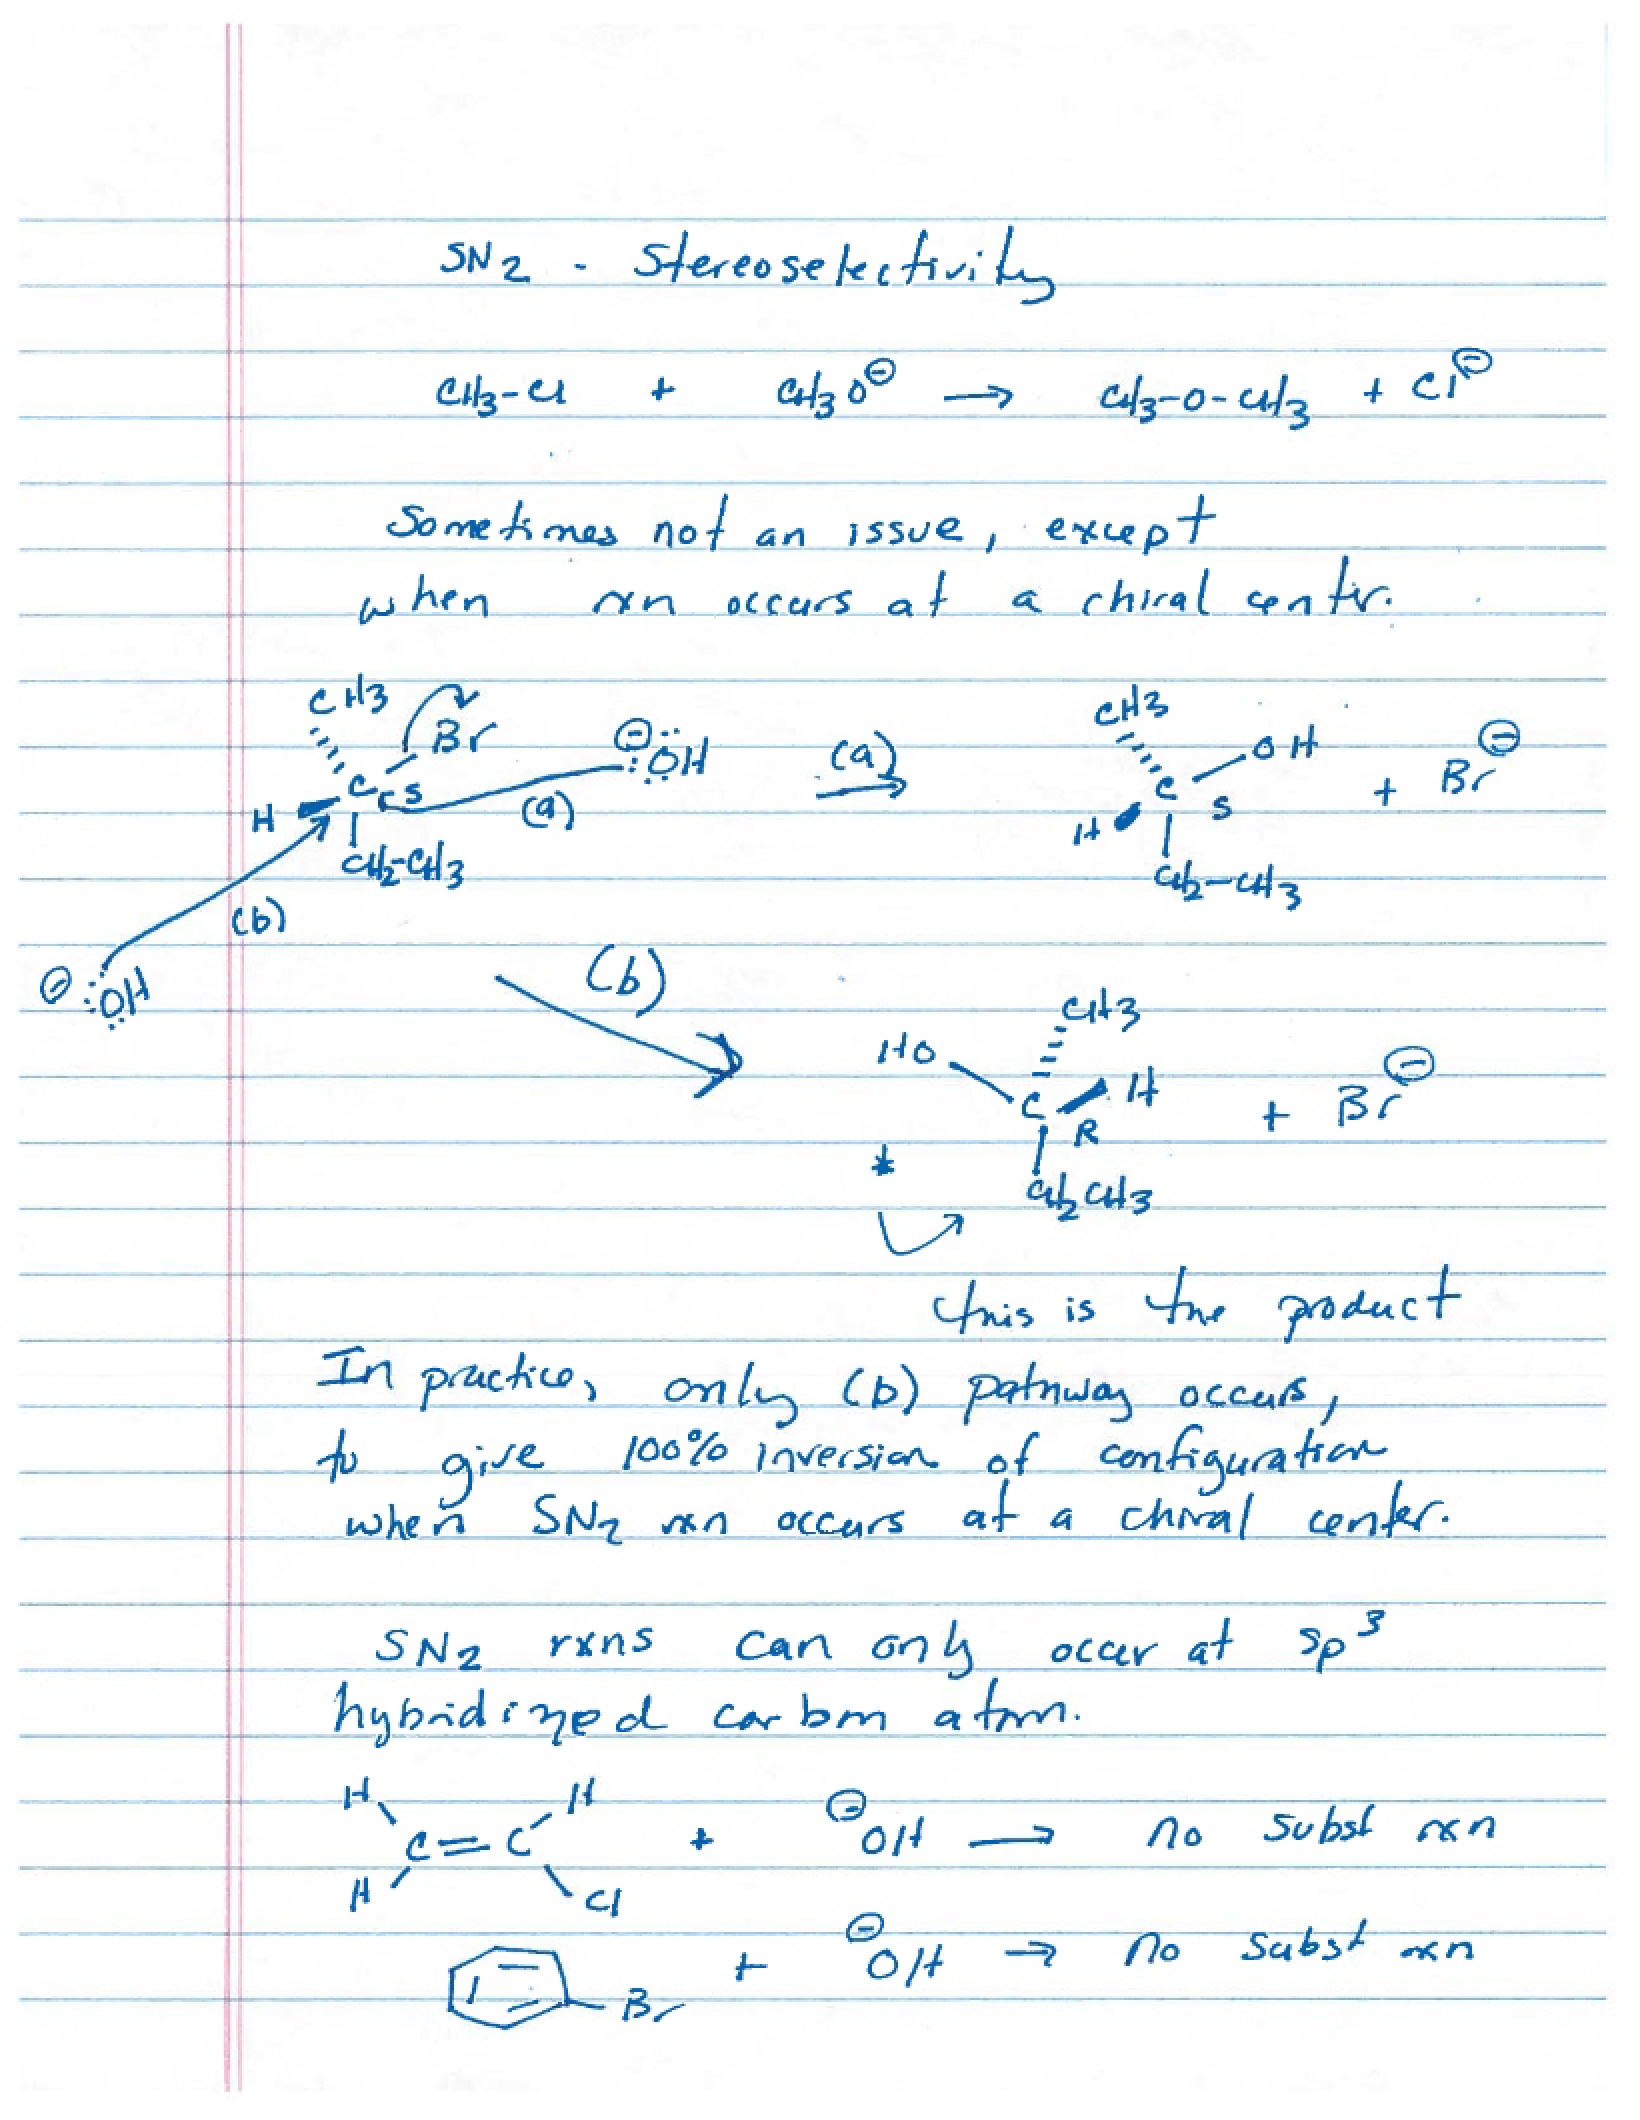 SN2 - Stereoselectivity
CH3-Cl + CH3O⊖ → CH3-O-CH3 + Cl⊖
Sometimes not an issue, except
when rxn occurs at a chiral center.
CH3 Br ⊖:ÖH (a) CH3 OH + Br⊖
H C S (a) H C S
CH2-CH3 CH2-CH3
(b)
⊖:ÖH (b)
CH3
HO C H + Br⊖
* R
CH2CH3
this is the product
In practice, only (b) pathway occurs,
to give 100% inversion of configuration
when SN2 rxn occurs at a chiral center.
SN2 rxns can only occur at sp³
hybridized carbon atom.
H H
C=C + ⊖OH → no subst rxn
H Cl
Br + ⊖OH → no subst rxn